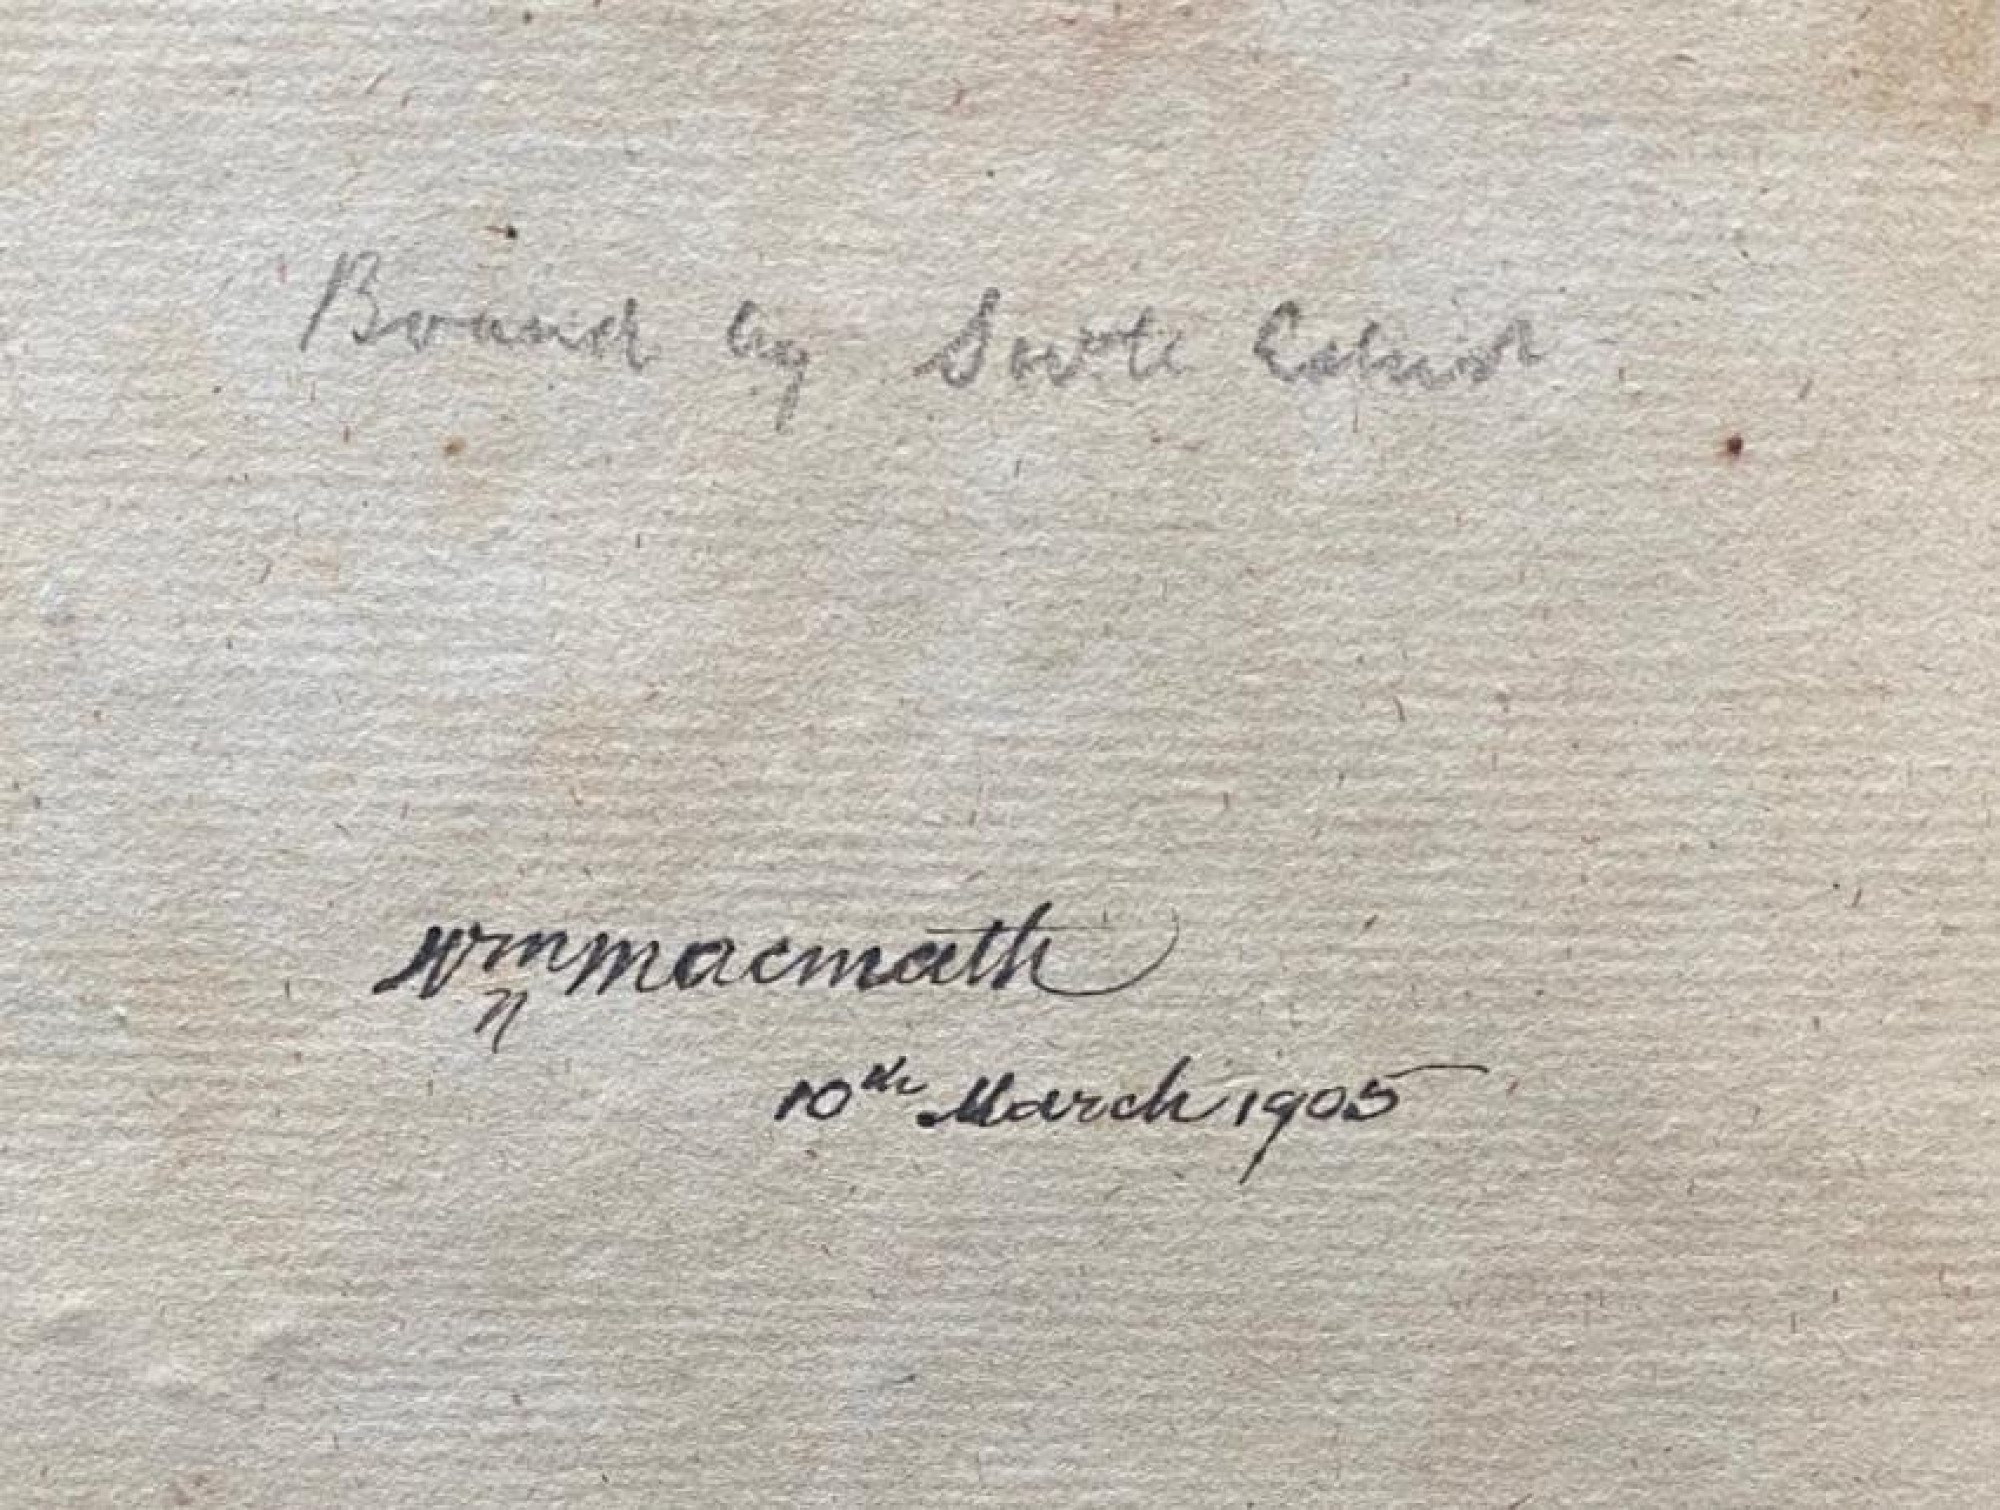 Bound by Scott Edinr
Wm Macmath
10th March 1905